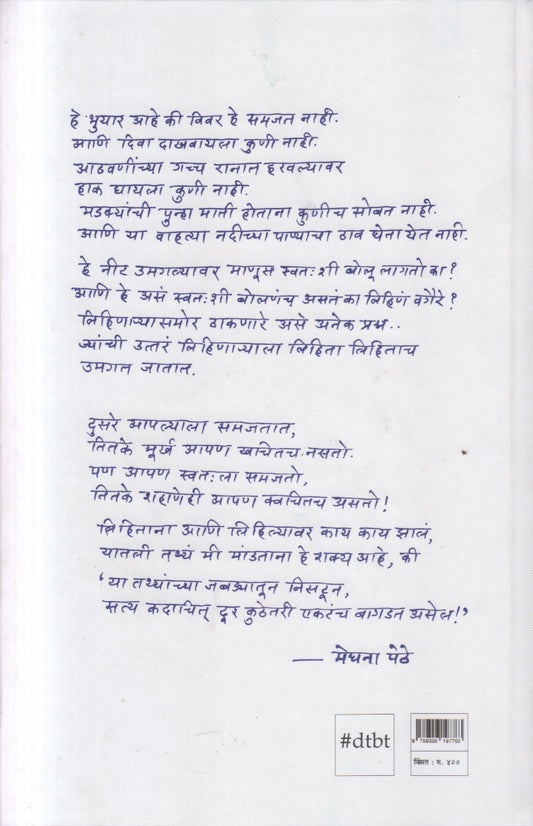 हे भुयार आहे की विवर हे समजत नाही.
आणि दिवा दाखवायला कुणी नाही.
आठवणींच्या गच्च रानात हरवल्यावर
हाक घायला कुणी नाही.
मडक्यांची पुन्हा माती होताना कुणीच सोबत नाही.
आणि या वाहत्या नदीच्या पाण्याचा ठाव घेता येत नाही.
हे नीट उमगल्यावर माणूस स्वतःशी बोलू लागतो का?
आणि हे असं स्वतःशी बोलणंच असतं का लिहिणं वगैरे?
लिहिणाऱ्यासमोर ठाकणारे असे अनेक प्रश्न..
ज्यांची उत्तरं लिहिणाऱ्याला लिहिता लिहिताच
उमगत जातात.
दुसरे आपल्याला समजतात,
तितके मूर्ख आपण खचितच नसतो.
पण आपण स्वतःला समजतो,
तितके शहाणेही आपण क्वचितच असतो!
लिहिताना आणि लिहिल्यावर काय काय झालं,
यातली तथ्यं मी मांडताना हे शक्य आहे, की
'या तथ्यांच्या जबड्यातून निसटून,
सत्य कदाचित् दूर कुठेतरी एकटंच बागडत असेल!'
— मेघना पेठे
#dtbt
9 789358 197763
किंमत : रु. ४००